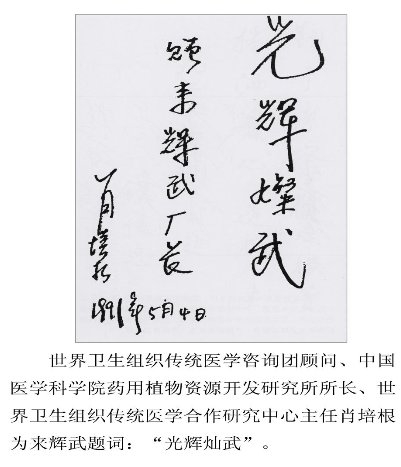 光辉灿武
颂来辉武厂长
肖培根
1991年5月4日
世界卫生组织传统医学咨询团顾问、中国
医学科学院药用植物资源开发研究所所长、世
界卫生组织传统医学合作研究中心主任肖培根
为来辉武题词：“光辉灿武”。